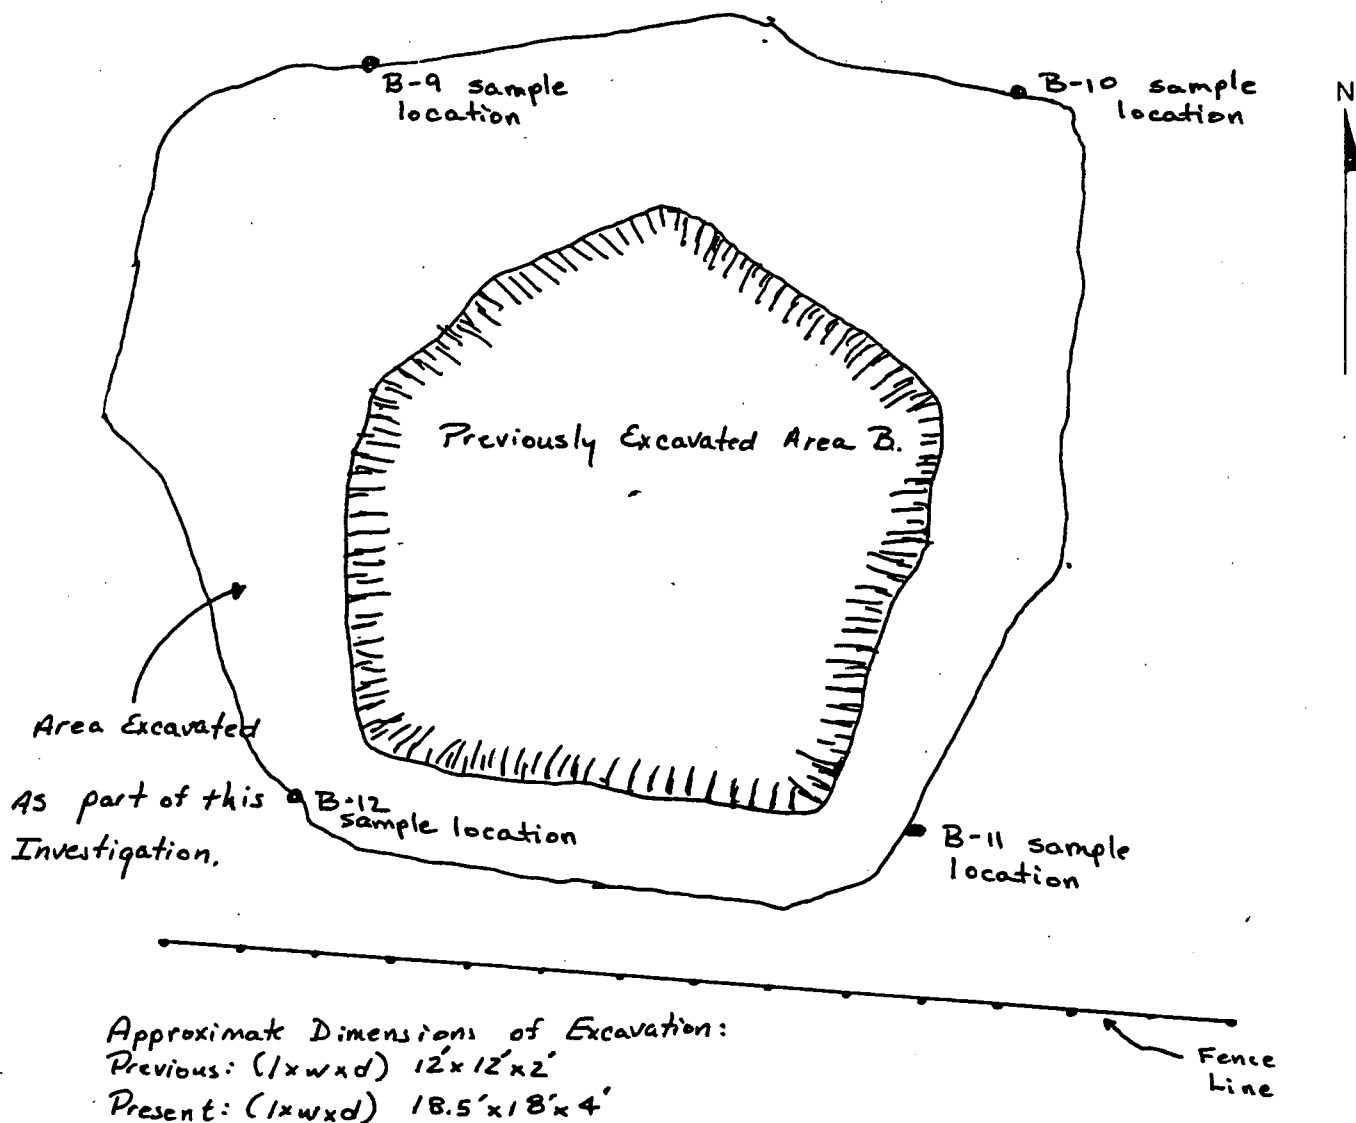 B-9 sample
location
B-10 sample
location
N
Previously Excavated Area B.
Area Excavated
As part of this
Investigation.
B-12
sample location
B-11 sample
location
Approximate Dimensions of Excavation:
Previous: (l x w x d) 12' x 12' x 2'
Present: (l x w x d) 18.5' x 18' x 4'
Fence
Line